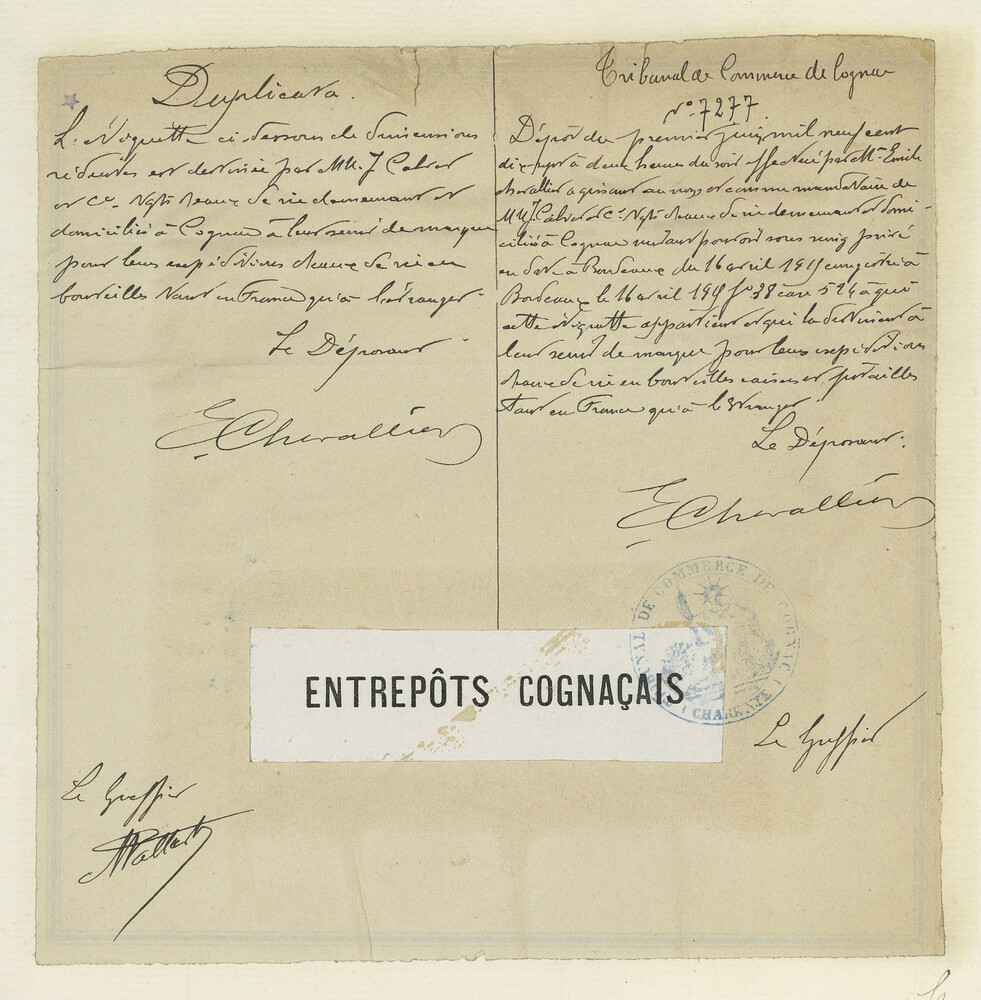 Duplicata.
L'étiquette ci-dessous de dimensions
réduites est destinée par MM. J Calvet
et Cie. Ngts d'eaux de vie demeurant et
domiciliés à Cognac à leur servir de marque
pour leurs expéditions d'eaux de vie en
bouteilles tant en France qu'à l'étranger.
Le Déposant
E Chevallier
Le Greffier
Tribunal de Commerce de Cognac
N° 7277
Dépôt du premier juin mil neuf cent
dix-sept à deux heures du soir effectué par Mr. Emile
Chevallier agissant au nom et comme mandataire de
MM J. Calvet et Cie Ngts d'eaux de vie demeurant et domi-
ciliés à Cognac suivant pouvoir sous seing privé
en date à Bordeaux du 16 avril 1915 enregistré à
Bordeaux le 16 avril 1915 f° 38 case 524 à qui
cette étiquette appartient et qui la destinent à
leur servir de marque pour leurs expéditions
d'eaux de vie en bouteilles caisses et futailles
tant en France qu'à l'étranger
Le Déposant.
E Chevallier
TRIBUNAL DE COMMERCE DE COGNAC
CHARENTE
ENTREPÔTS COGNAÇAIS
Le Greffier